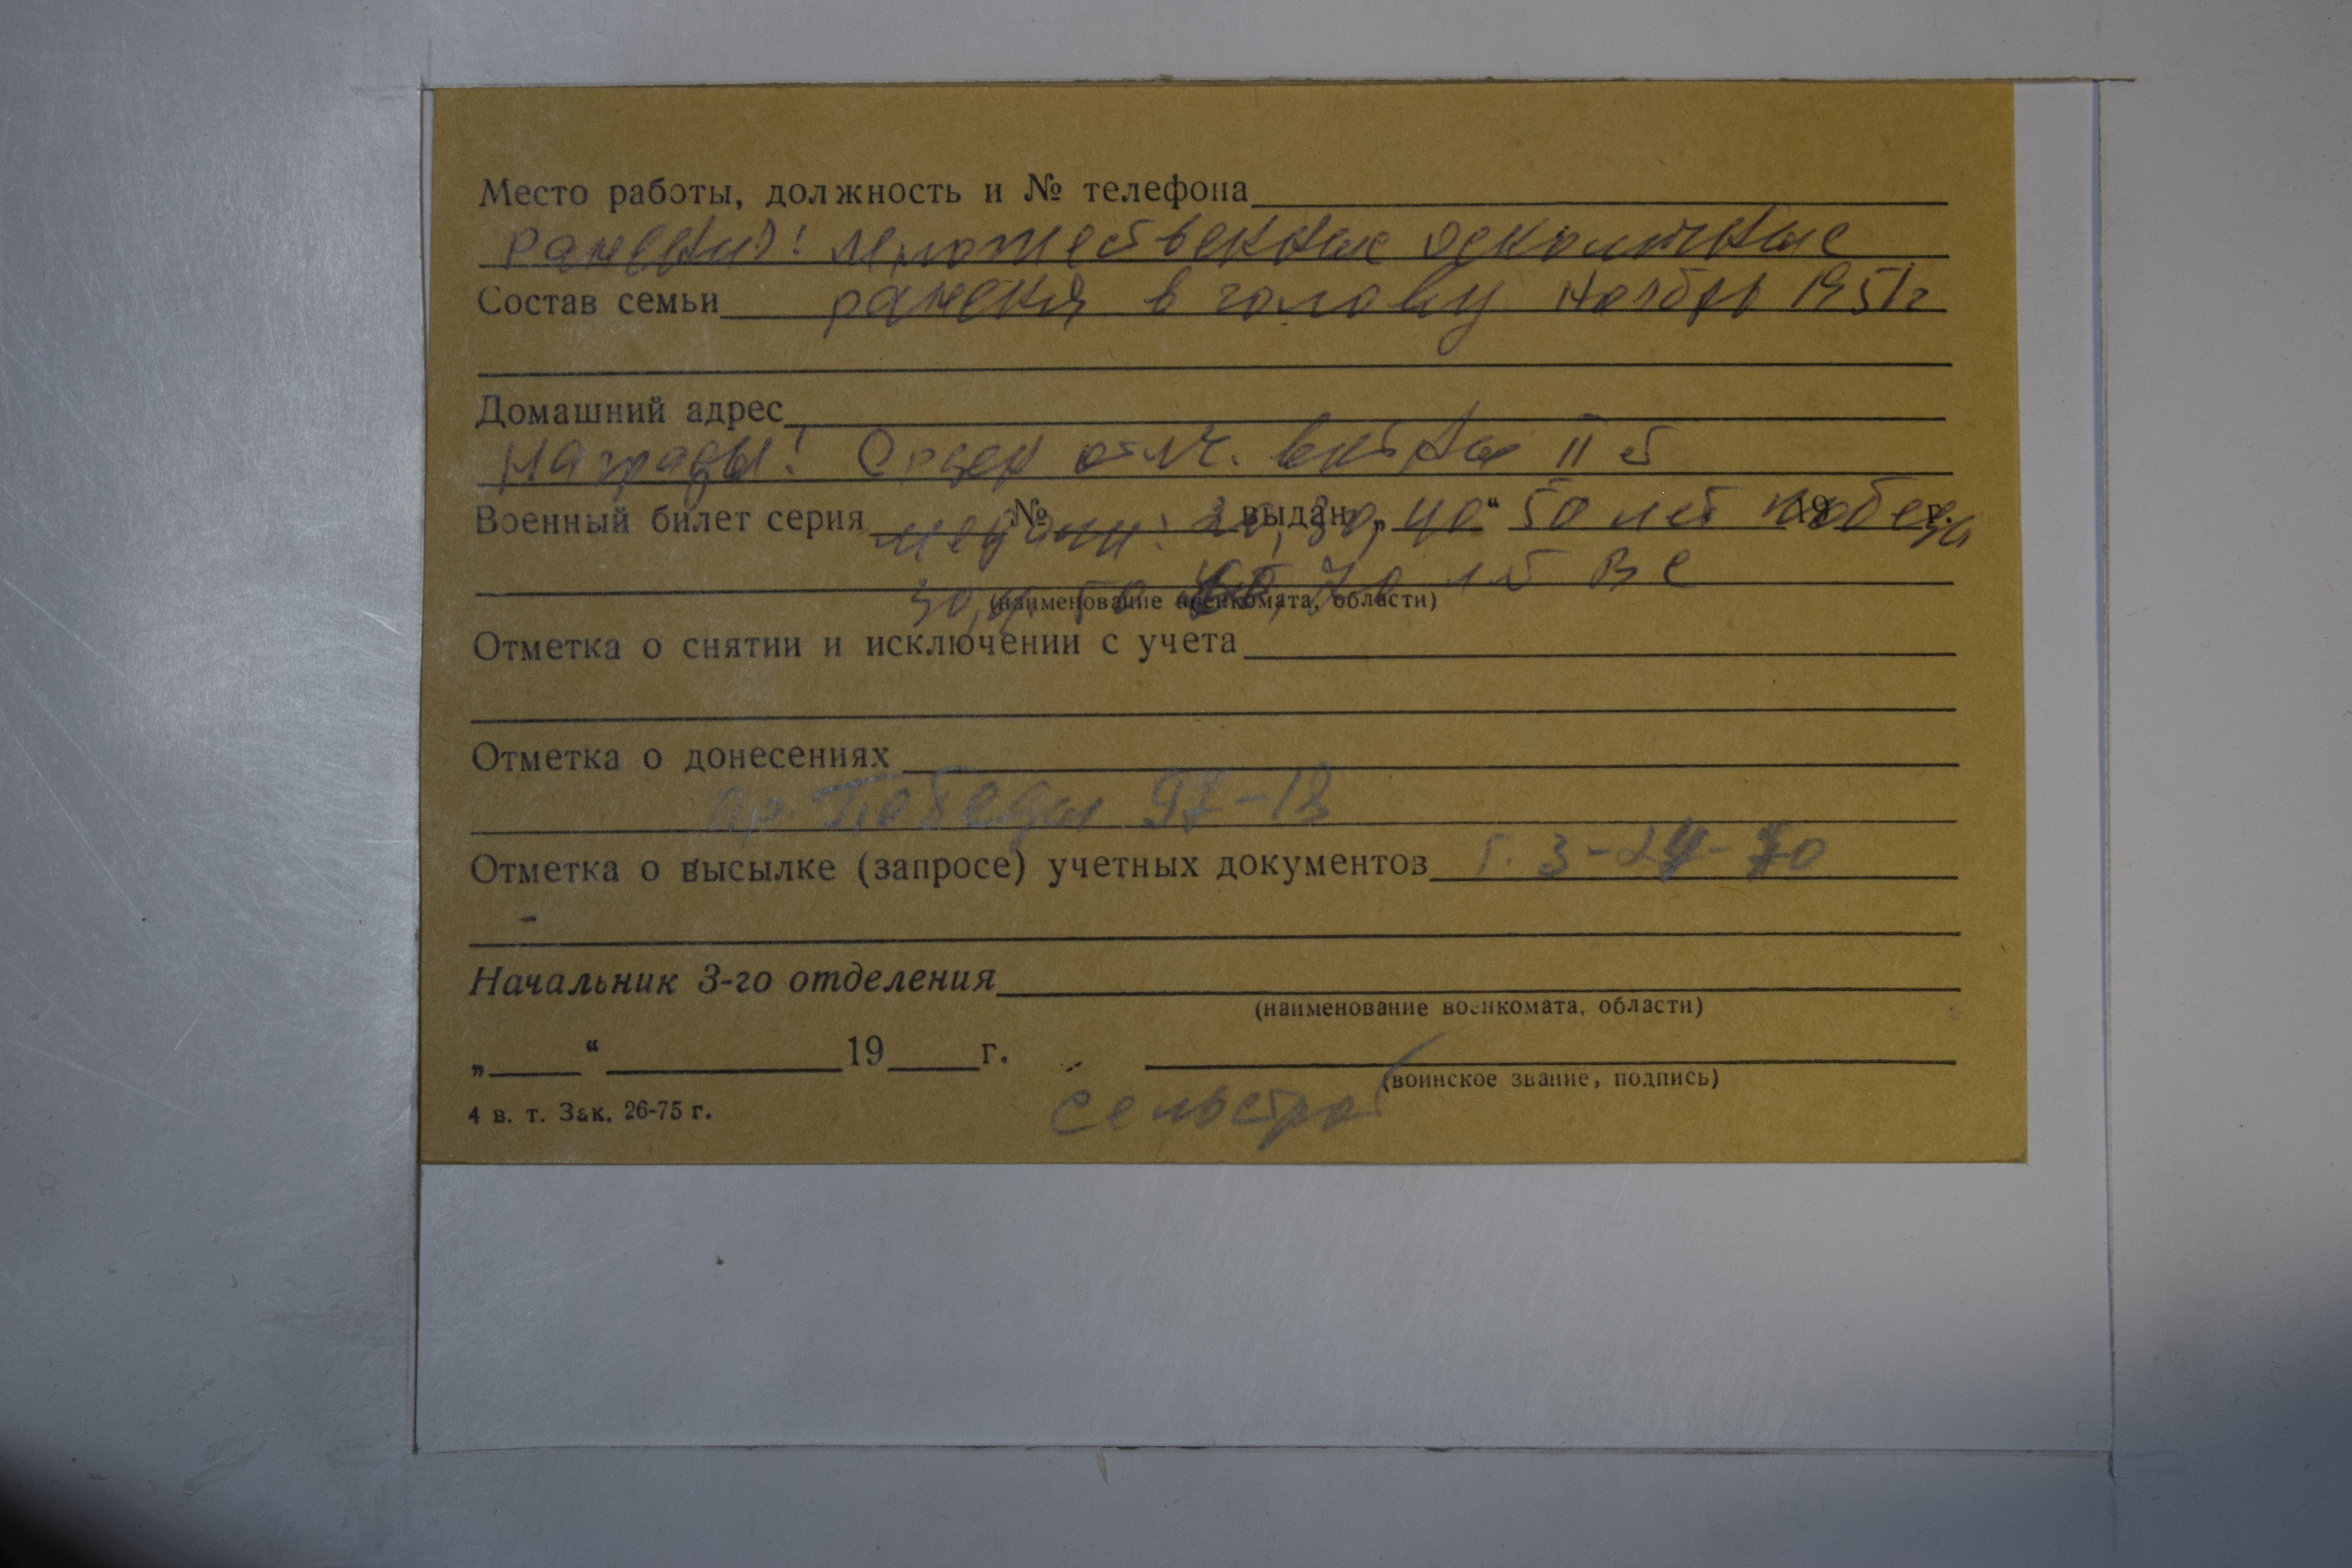 Место работы, должность и № телефона
Ранения! множественные осколочные
Состав семьи ранения в голову ноябрь 1951г
Домашний адрес
Награды! Орден отеч. войны II ст
Военный билет серия № выдан „ “ 19 г.
медали: 20, 30, 40 50 лет победы
30, 50 60, 70 лет ВС
(наименование военкомата, области)
Отметка о снятии и исключении с учета
Отметка о донесениях
пр. Победы 97-18
Отметка о высылке (запросе) учетных документов т. 3-24-70
Начальник 3-го отделения
(наименование военкомата, области)
„ “ 19 г.
(воинское звание, подпись)
4 в. т. Зак. 26-75 г.